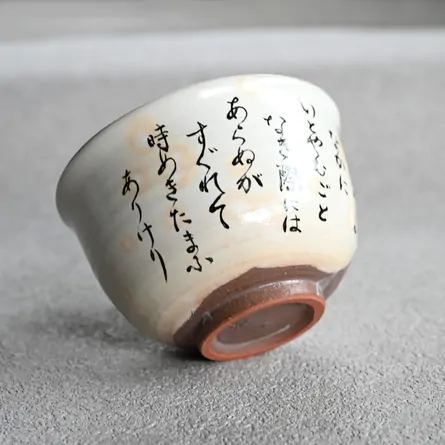 なかに
いとやむごと
なき際には
あらぬが
すぐれて
時めきたまふ
ありけり